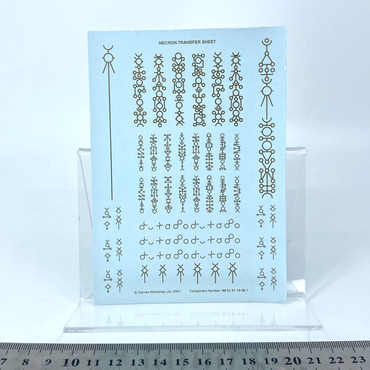 NECRON TRANSFER SHEET
© Games Workshop Ltd. 2001 Component Number:
7 8 9 10 11 12 13 14 15 16 17 18 19 20 21 22 23